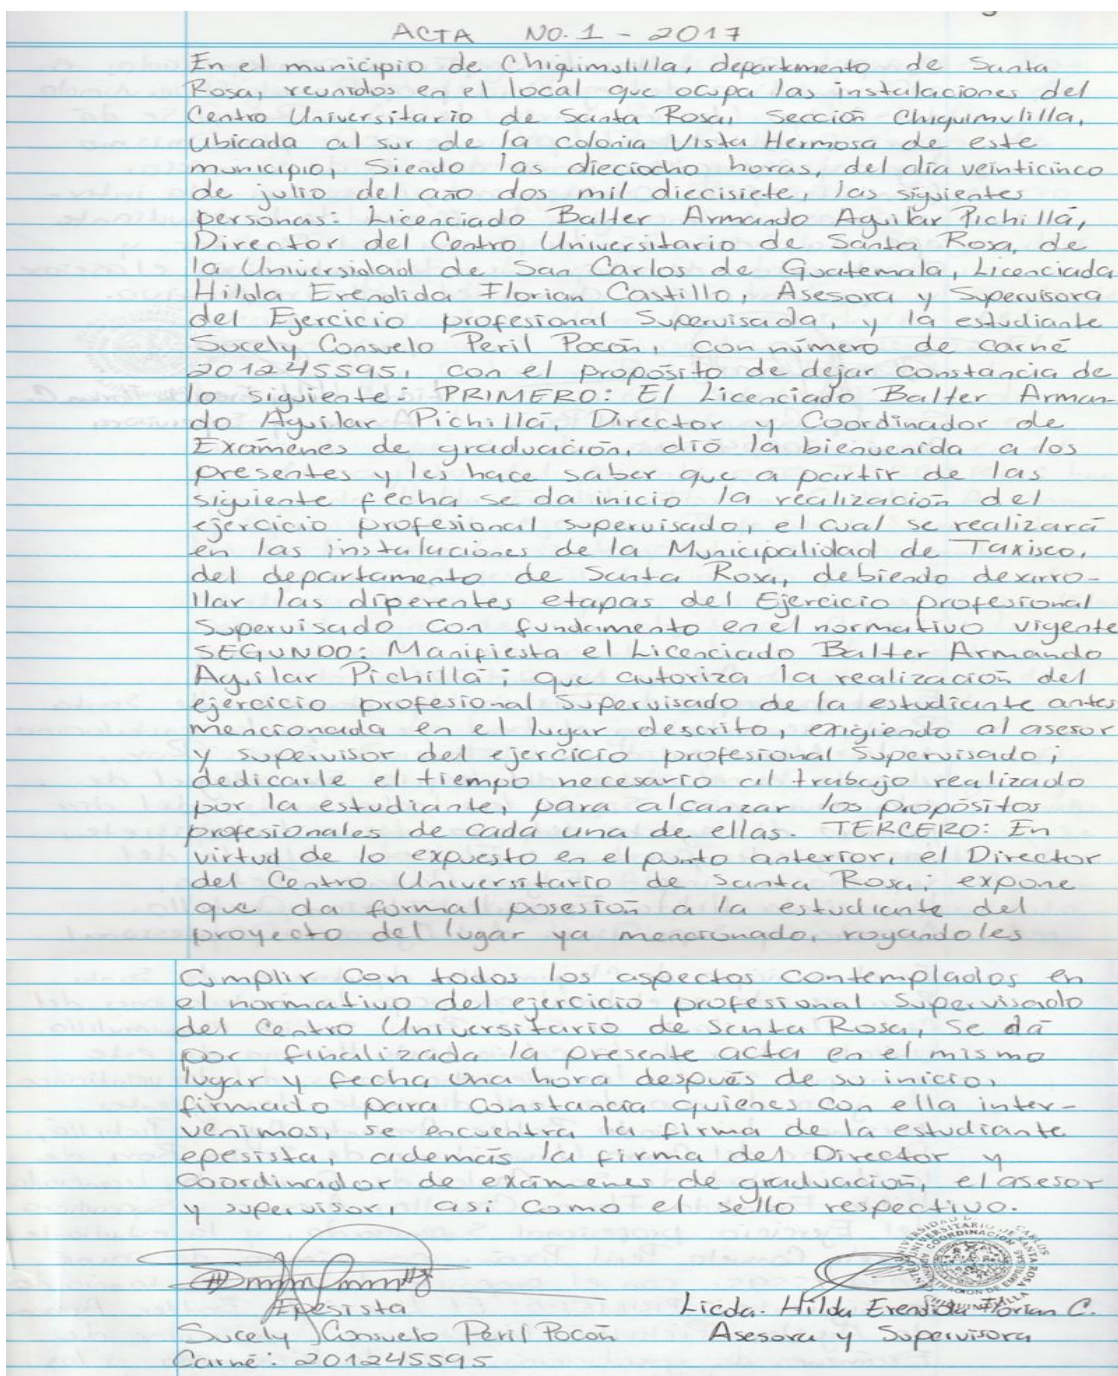 ACTA NO. 1 - 2017
En el municipio de Chiquimulilla, departamento de Santa
Rosa, reunidos en el local que ocupa las instalaciones del
Centro Universitario de Santa Rosa, Sección Chiquimulilla,
ubicada al sur de la colonia Vista Hermosa de este
municipio, Siendo las dieciocho horas, del día veinticinco
de julio del año dos mil diecisiete, las siguientes
personas: Licenciado Balter Armando Aguilar Pichillá,
Director del Centro Universitario de Santa Rosa, de
la Universidad de San Carlos de Guatemala, Licenciada
Hilda Erendida Florian Castillo, Asesora y Supervisora
del Ejercicio profesional Supervisada, y la estudiante
Sucely Consuelo Peril Pocón, con número de carné
201245595, con el propósito de dejar constancia de
lo siguiente: PRIMERO: El Licenciado Balter Arman-
do Aguilar Pichillá, Director y Coordinador de
Exámenes de graduación, dió la bienvenida a los
presentes y les hace saber que a partir de las
siguiente fecha se da inicio la realización del
ejercicio profesional supervisado, el cual se realizará
en las instalaciones de la Municipalidad de Taxisco,
del departamento de Santa Rosa, debiendo desarro-
llar las diferentes etapas del Ejercicio profesional
Supervisado con fundamento en el normativo vigente
SEGUNDO: Manifiesta el Licenciado Balter Armando
Aguilar Pichillá; que autoriza la realización del
ejercicio profesional Supervisado de la estudiante antes
mencionada en el lugar descrito, exigiendo al asesor
y supervisor del ejercicio profesional Supervisado;
dedicarle el tiempo necesario al trabajo realizado
por la estudiante, para alcanzar los propósitos
profesionales de cada una de ellas. TERCERO: En
virtud de lo expuesto en el punto anterior, el Director
del Centro Universitario de Santa Rosa; expone
que da formal posesión a la estudiante del
proyecto del lugar ya mencionado, rogandoles
Cumplir con todos los aspectos contemplados en
el normativo del ejercicio profesional Supervisado
del Centro Universitario de Santa Rosa, Se dá
por finalizada la presente acta en el mismo
lugar y fecha una hora después de su inicio,
firmado para constancia quienes con ella inter-
venimos, se encuentra la firma de la estudiante
epesista, además la firma del Director y
Coordinador de exámenes de graduación, el asesor
y supervisor, asi como el sello respectivo.
Epesista
Licda. Hilda Erendida Florian C.
Sucely Consuelo Peril Pocón
Asesora y Supervisora
Carné: 201245595